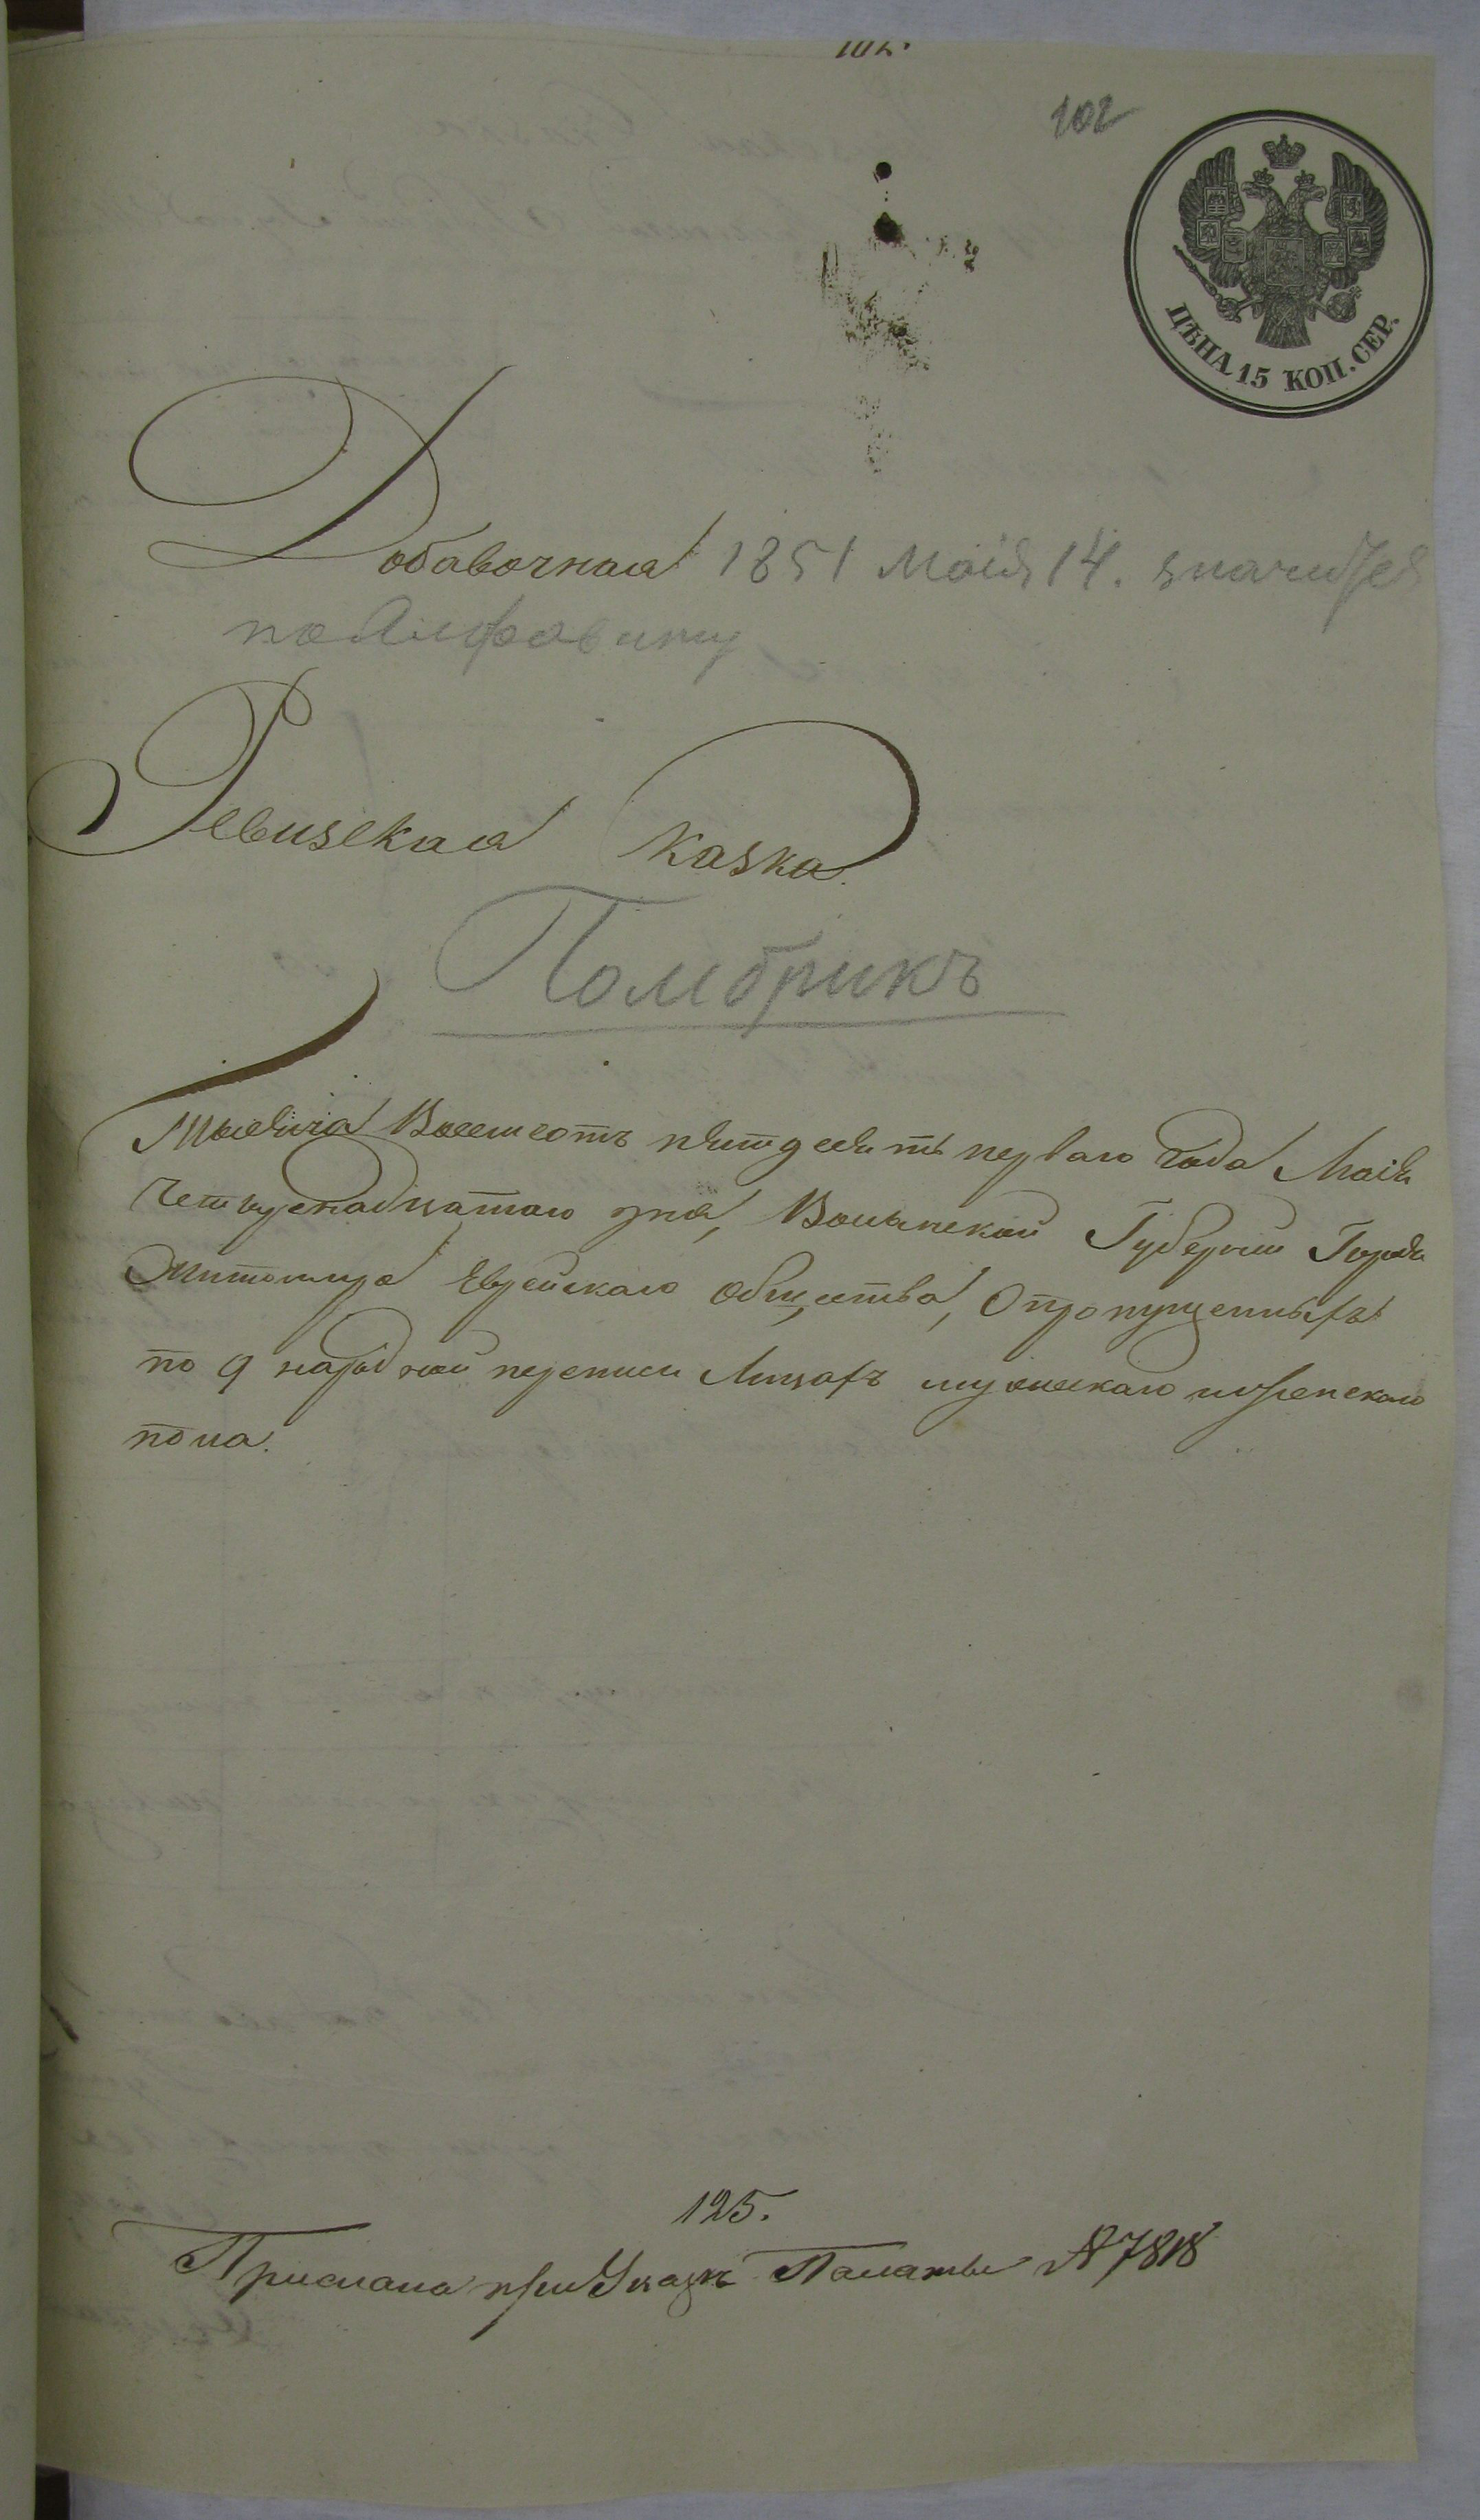 102.
102
ЦѢНА 15 КОП. СЕР.
Добавочная 1851 Маія 14. значится
по Алфавиту
Ревизская Сказка.
Гольбрикъ
Тысяча Восемсотъ пятдесятъ перваго года Маія
четырнадцатаго дня, Волынской Губерніи Города
Житомира Еврейскаго общества, О пропущенныхъ
по 9 народной переписи Лицахъ мужескаго и женскаго
пола.
125.
Прислана при Указѣ Палаты № 7818